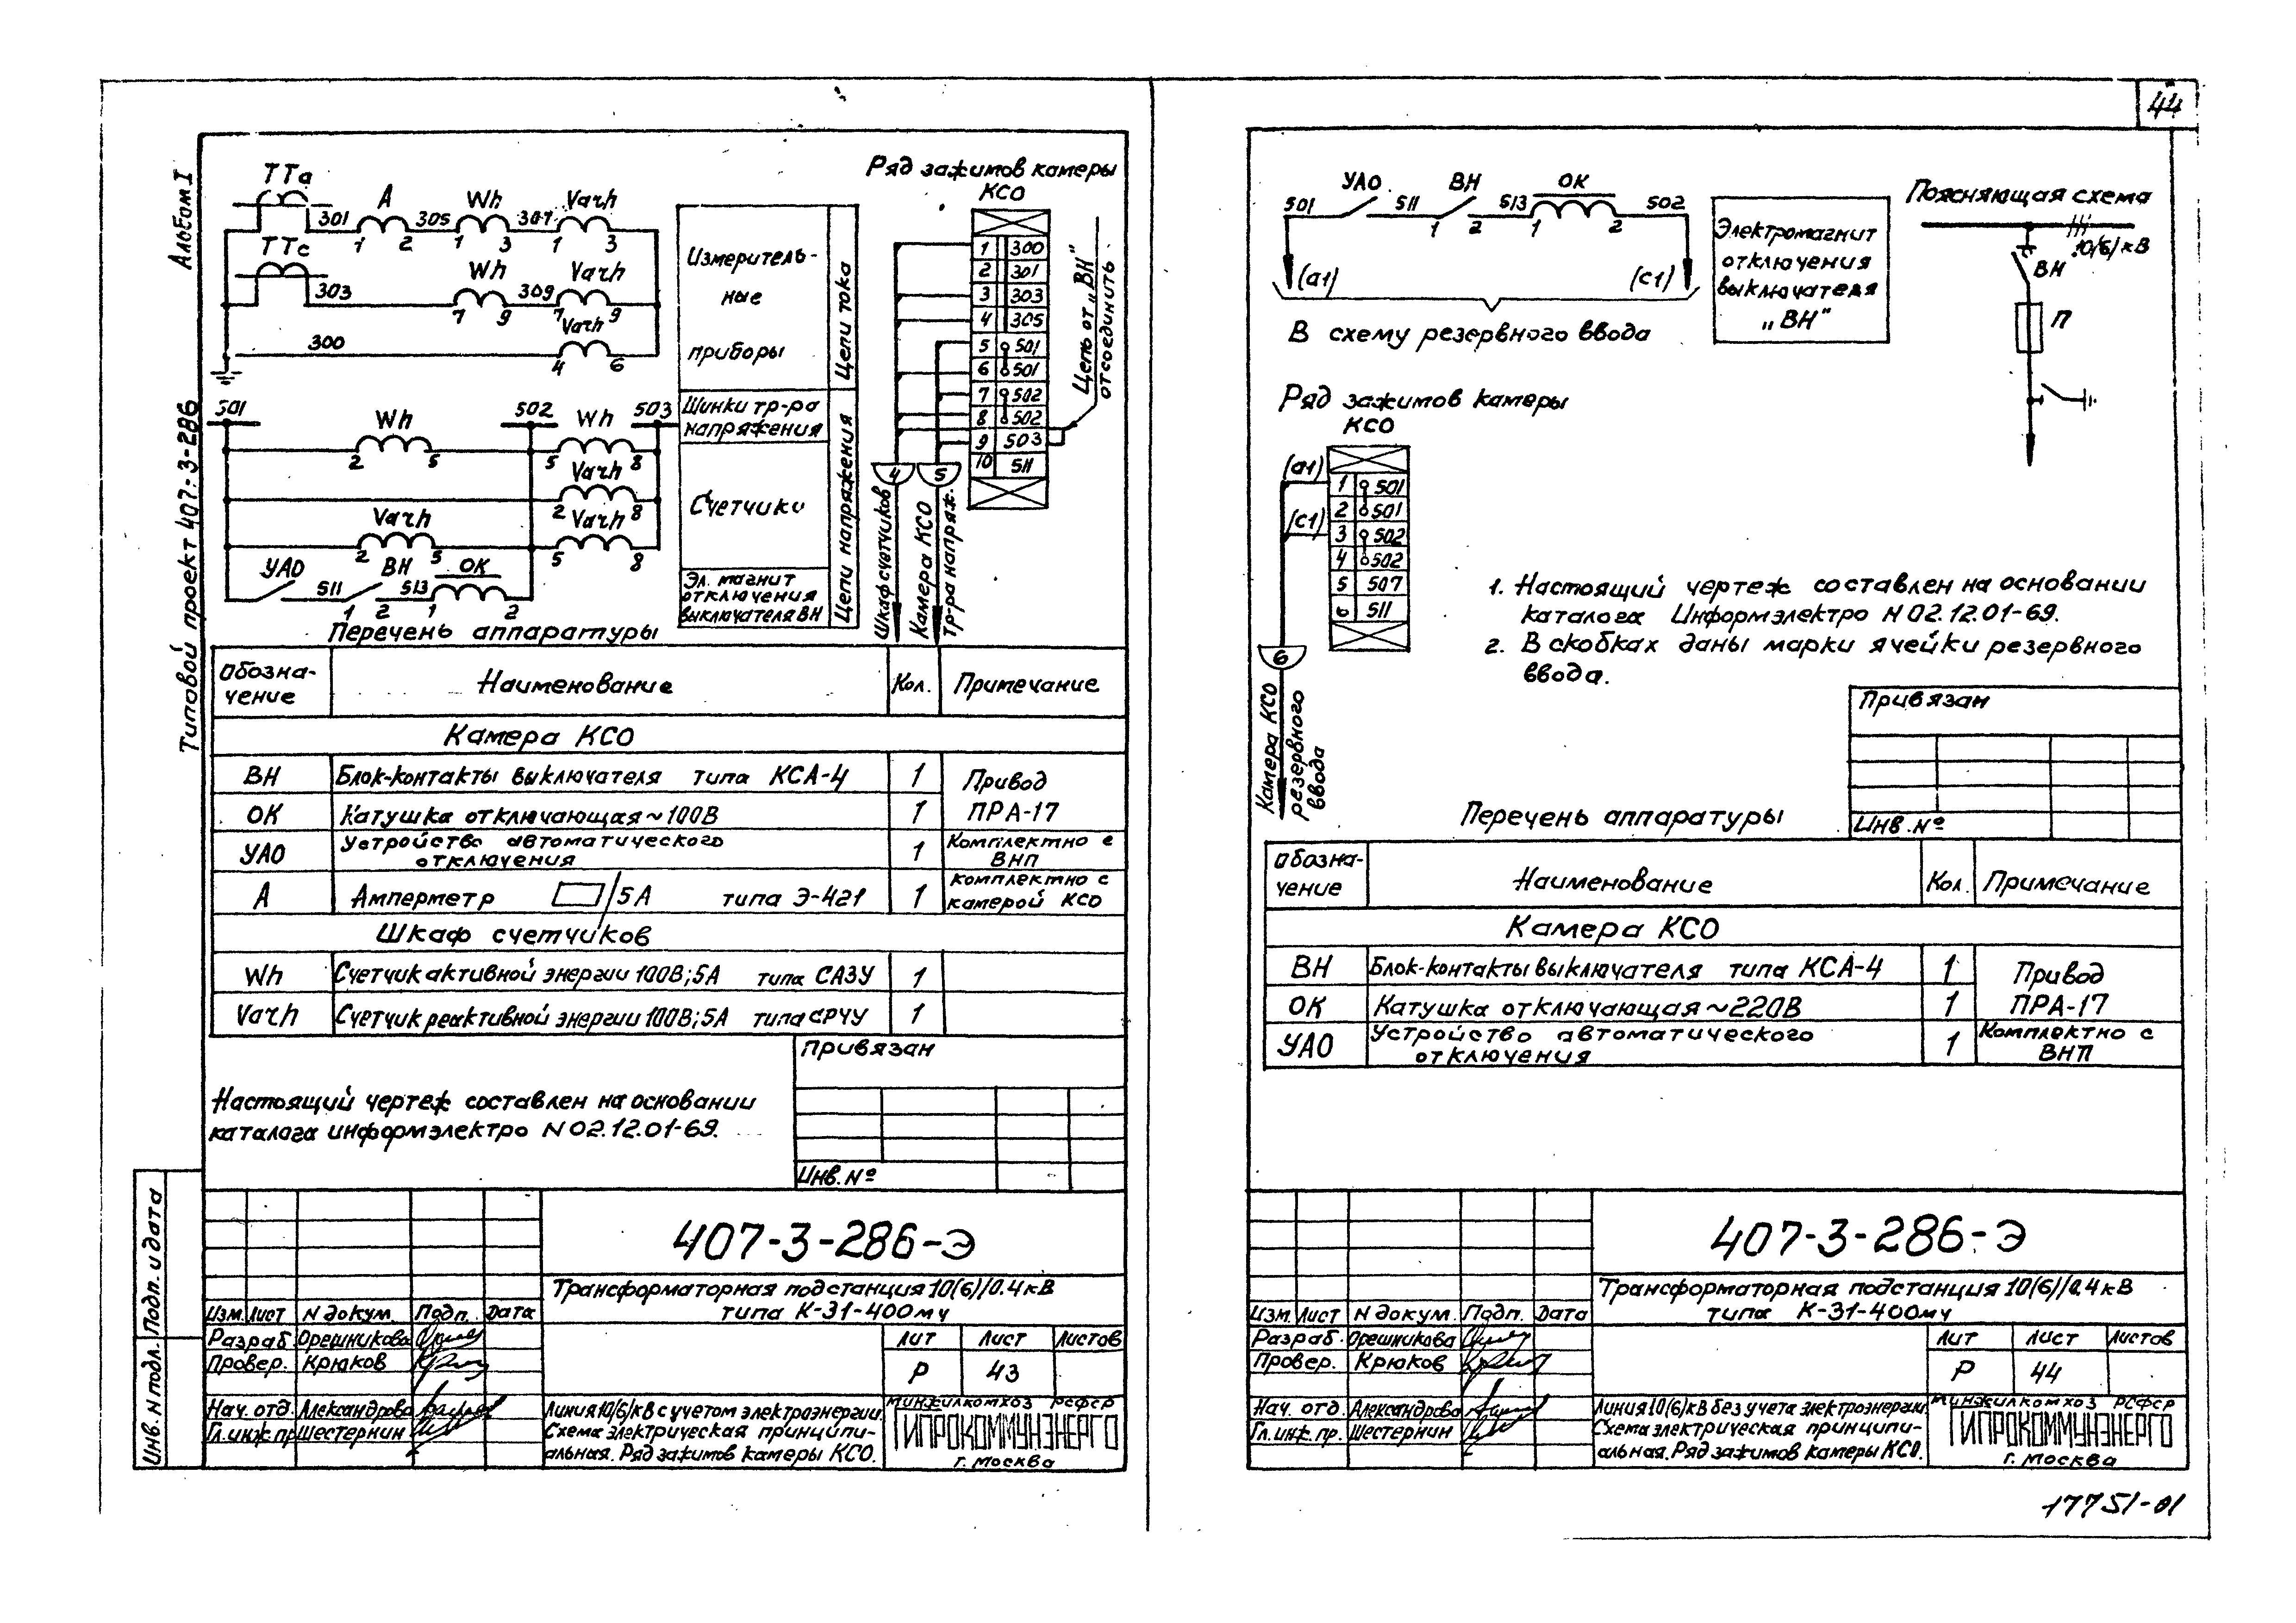 44
Альбом I
Типовой проект 407-3-286
ТТа
301
А
1 2
305
Wh
1 3
307
Varh
1 3
ТТс
303
Wh
7 9
309
Varh
7 9
300
Varh
4 6
Измеритель-
ные
приборы
Цепи тока
501
502
503
Wh
2 5
Wh
5 8
Varh
2 8
Varh
2 5
Varh
5 8
УАО
511
ВН
1 2
513
ОК
1 2
Шинки тр-ра
напряжения
Счетчики
Эл. магнит
отключения
выключателя ВН
Цепи напряжения
Ряд зажимов камеры
КСО
1 300
2 301
3 303
4 305
5 501
6 501
7 502
8 502
9 503
10 511
Цепь от „ВН"
отсоединить
4
5
Шкаф счетчиков
Камера КСО
Тр-ра напряж.
Перечень аппаратуры
Обозна-
чение
Наименование
Кол.
Примечание
Камера КСО
ВН Блок-контакты выключателя типа КСА-4 1 Привод
ОК Катушка отключающая ~100В 1 ПРА-17
УАО Устройство автоматического
отключения 1 Комплектно с
ВНП
А Амперметр /5А типа Э-421 1 Комплектно с
камерой КСО
Шкаф счетчиков
Wh Счетчик активной энергии 100В;5А типа СА3У 1
Varh Счетчик реактивной энергии 100В;5А типа СР4У 1
Привязан
Инв.№
Настоящий чертеж составлен на основании
каталога информэлектро N 02.12.01-69.
Подп. и дата
Инв. N подл.
407-3-286-Э
Трансформаторная подстанция 10(6)/0.4кВ
типа К-31-400му
Изм. Лист N докум. Подп. Дата
Разраб Орешникова
Провер. Крюков
Нач. отд. Александрова
Гл.инж.пр Шестернин
Лит Лист Листов
Р 43
Линия 10(6)кВ с учетом электроэнергии.
Схема электрическая принципи-
альная. Ряд зажимов камеры КСО.
Минжилкомхоз РСФСР
ГИПРОКОММУНЭНЕРГО
г. Москва
501
УАО
511
ВН
1 2
513
ОК
1 2
502
(а1)
(с1)
В схему резервного ввода
Электромагнит
отключения
выключателя
„ВН"
Поясняющая схема
10(6)кВ
ВН
П
Ряд зажимов камеры
КСО
(а1)
(с1)
1 501
2 501
3 502
4 502
5 507
6 511
6
Камера КСО
резервного
ввода
1. Настоящий чертеж составлен на основании
каталога Информэлектро N 02.12.01-69.
2. В скобках даны марки ячейки резервного
ввода.
Привязан
Инв.№
Перечень аппаратуры
Обозна-
чение
Наименование
Кол.
Примечание
Камера КСО
ВН Блок-контакты выключателя типа КСА-4 1 Привод
ОК Катушка отключающая ~220В 1 ПРА-17
УАО Устройство автоматического
отключения 1 Комплектно с
ВНП
407-3-286-Э
Трансформаторная подстанция 10(6)/0.4кВ
типа К-31-400му
Изм. Лист N докум. Подп. Дата
Разраб. Орешникова
Провер. Крюков
Нач. отд. Александрова
Гл.инж.пр. Шестернин
Лит Лист Листов
Р 44
Линия 10(6)кВ без учета электроэнергии.
Схема электрическая принципи-
альная. Ряд зажимов камеры КСО.
Минжилкомхоз РСФСР
ГИПРОКОММУНЭНЕРГО
г. Москва
17751-01